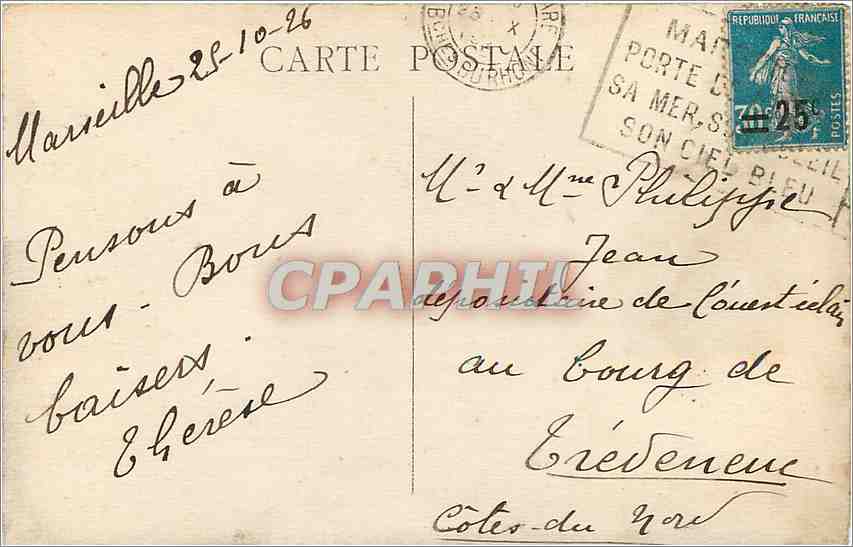 Marseille 25-10-26
CARTE POSTALE
BCHES DU RHONE
REPUBLIQUE FRANÇAISE
30c
25c
POSTES
MAR
PORTE D
SA MER, S SOLEIL
SON CIEL BLEU
Pensons à
vous. Bons
baisers.
Thérèse
Mr & Mme Philippe
Jean
dépositaire de l'ouest éclair
au bourg de
Trédeneuc
Côtes-du Nord
CPAPHIL